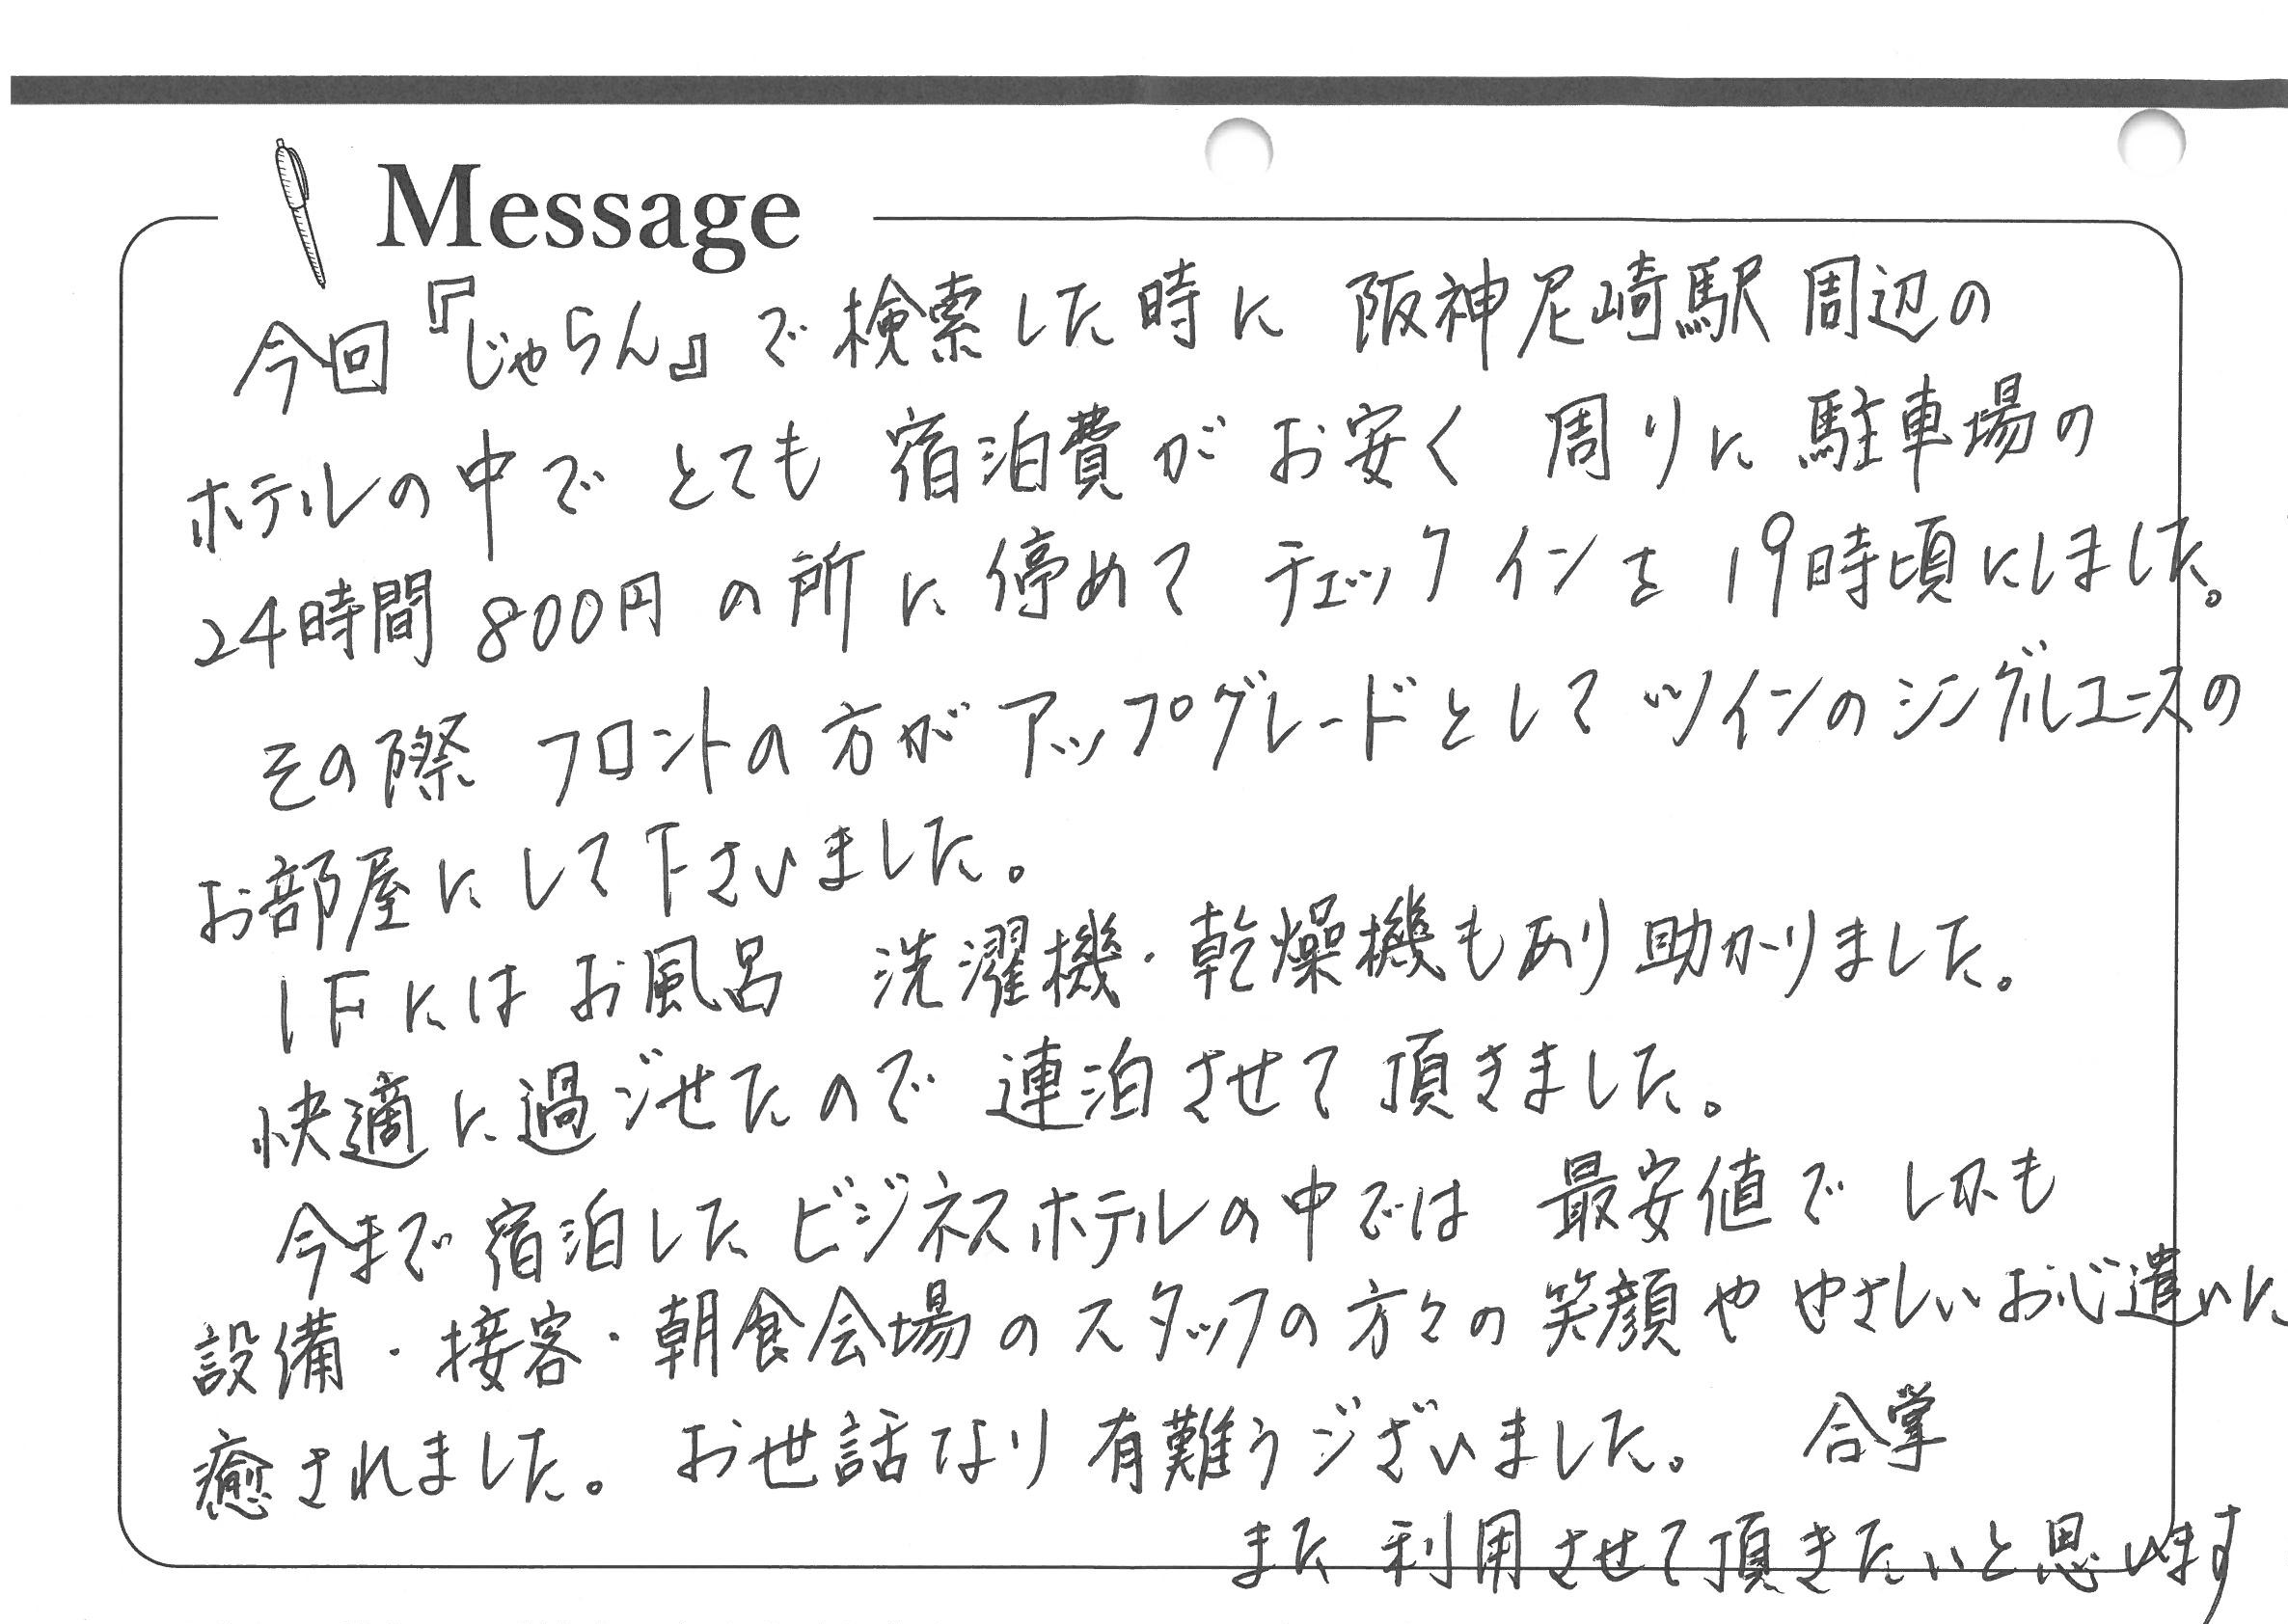 Message
今回『じゃらん』で検索した時に 阪神尼崎駅周辺の
ホテルの中で とても 宿泊費が お安く 周りに 駐車場の
24時間 800円 の所に 停めて チェックインを 19時頃にしました。
その際 フロントの方が アップグレードとして ツインのシングルユースの
お部屋にして下さいました。
1Fには お風呂 洗濯機・乾燥機もあり 助かりました。
快適に過ごせたので 連泊させて頂きました。
今まで宿泊した ビジネスホテルの中では 最安値で しかも
設備・接客・朝食会場の スタッフの方々の 笑顔や やさしいお心遣いに
癒されました。 お世話なり 有難うございました。 合掌
また 利用させて頂きたいと思います